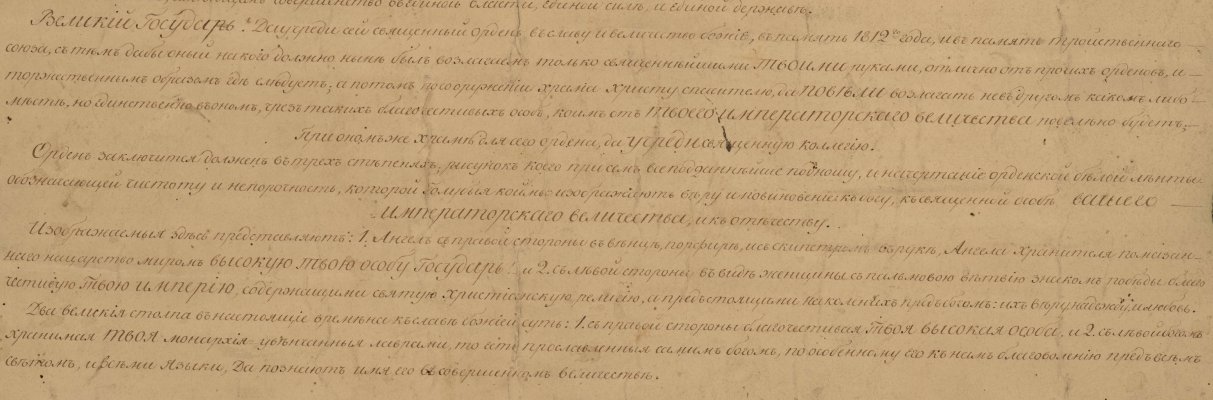 совершенство объемной власти, единой силѣ, и единой державѣ.
Великій Государь! Да учреди сей священный Орденъ въ славу и величество божіе, въ память 1812го года, и въ память тройственнаго
союза, съ тѣмъ дабы оный на кого должно нынѣ былъ возлагаемъ только священнѣйшими Твоими руками, отлично отъ прочихъ орденовъ, и
торжественнымъ образомъ гдѣ слѣдуетъ; а потомъ по сооруженіи храма Христу спасителю, да повѣли возлагать не въ другомъ какомъ либо
мѣстѣ, но единственно въ ономъ, чрезъ такихъ благочестивыхъ особъ, коимъ отъ твоего императорскаго величества повелѣно будетъ;
При ономъ же храмѣ для сего ордена, да учреди священную коллегію.
Орденъ заключится долженъ въ трехъ степеняхъ, рисунокъ коего при семъ всеподданнѣйше подношу, и начертаніе орденской бѣлой ленты
обозначающей чистоту и непорочность, которой голубыя коймы изображаютъ вѣру и повиновеніе къ богу, къ священной особѣ вашего
Императорскаго величества, и къ отечеству.
Изображаемыя здѣсь представляютъ: 1. Ангелъ съ правой стороны въ вѣнцѣ, порфирѣ, и съ скипетромъ въ рукѣ, Ангела хранителя помазан-
наго на царство миромъ высокую твою особу Государь! и 2. съ лѣвой стороны въ видѣ женщины съ пальмовою вѣтвію знакомъ побѣды благо
честивую Твою империю, содержащими святую христіанскую религію, и предъстоящими на коленяхъ предъ богомъ: ихъ вѣру надежду и любовь.
Два великія столпа въ настоящіе времена къ славѣ божіей суть: 1. съ правой стороны благочестивая Твоя высокая особа, и 2. съ лѣвой богомъ
хранимая твоя монархія увѣнчанныя лаврами, то есть прославленныя самимъ богомъ, по особенному его къ намъ благоволенію предъ всѣмъ
свѣтомъ, и всѣми языки, Да познаютъ имя его въ совершенномъ величествѣ.